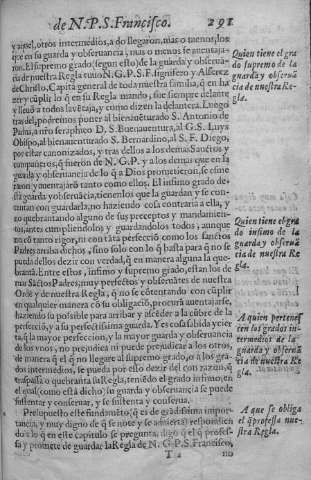 de N.P.S. Francisco. 291
y a aquel, otros intermedios, a do llegaron, mas o menos, los
que en su guarda y obseruancia, mas o menos se auentaja-
ron. El supremo grado (segun esto) de la guarda y obseruã-
cia de nuestra Regla tuuo N. G. P. S. F. signifero y Alferez
de Christo, Capitã general de toda nuestra familia, q̃ en ha-
zer y cũplir lo q̃ en su Regla mando, fue siempre delante,
y lleuò a todos la vẽtaja, y como dizen la delantera. Luego
tras del, podremos poner al bienauẽturado S. Antonio de
Padua, a nr̃o seraphico D. S. Buenauentura, al G. S. Luys
Obispo, al bienauenturado S. Bernardino, al S. F. Diego,
por estar canonizados, y tras dellos a los demas Sanctos y
compañeros, q̃ fuerõn de N. G. P. y a los demas que en la
guarda y obseruancia de lo q̃ a Dios prometieron, se estme
raron y auentajarõ tanto como ellos. El infimo grado de-
sta guarda y obseruãcia, tienen los que la guardan y se con-
tentan con guardarla, no haziendo cosa contraria a ella, y
no quebrantando alguno de sus preceptos y mandamien-
tos, antes cumpliendolos y guardandolos todos, aunque
no cõ tanto rigor, ni con tãta perfeccio como los sanctos
Padres arriba dichos, sino solo con lo q̃ basta para q̃ no se
pueda dellos dezir con verdad, q̃ en manera alguna la que-
brantã. Entre estos, infimo y supremo grado, estan los de-
mas Sãctos Padres, muy perfectos y obseruantes de nuestra
Ordẽ y de nuestra Regla, q̃ no se cõtentando con cũplir
en qualquier manera cõ su obligacio, procurã auentajarse,
haziendo su possible para arribar y ascẽder a la cũbre de la
perfecciõ, y a su perfectissima guarda. Y es cosa sabida y cier
ta, q̃ la mayor perfeccion, y la mayor guarda y obseruancia
de los vnos, no perjudica ni puede prejudicar a los otros,
de manera q̃ el q̃ no llegare al supremo grado, o a los gra-
dos intermedios, se pueda por esso dezir del con razon, q̃
traspassa o quebranta su Regla, teniẽdo el grado infimo, en
el qual (como està dicho) su guarda y obseruancia se puede
sustentar y conseruar, y se sustenta y conserua.
Presupuesto este fundamẽto, q̃ es de grãdissima impor-
tancia, y muy digno de q̃ se note y se aduierta, respondien
do a lo q̃ en este capitulo se pregunta, digo q̃ el q̃ profes-
sa y promete de guardar la Regla de N. G. P. S. Francisco,
T 2 no
Quien tiene el gra
do supremo de la
guarda y obseruã
cia de nuestra Re-
gla.
Quien tiene el gra
do infimo de la
guarda y obseruã
cia de nuestra Re
gla.
A quien pertenes
cen los grados in-
termedios de la
guarda y obseruã
cia de nuestra Re
gla.
A que se obliga
el q̃ professa nue-
stra Regla.